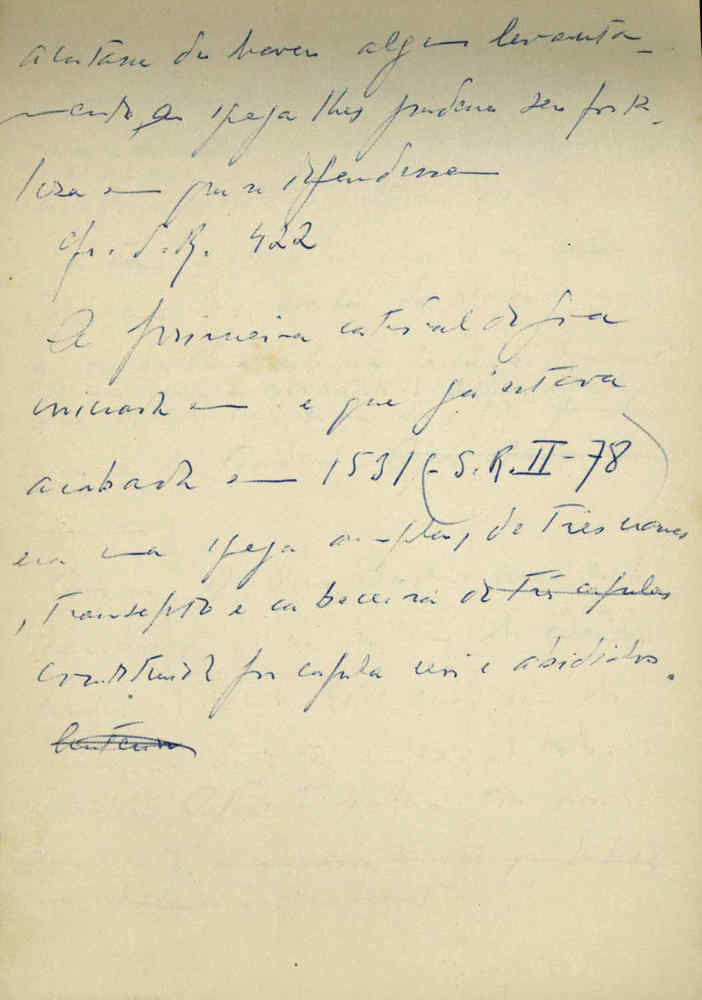 acertasse de haver algum levanta-
mento, a igreja lhes pudesse ser forta-
leza em que se defendessem
cfr. S.R. 422
A primeira catedral de Goa
iniciada em e que já estava
acabada em 1531 (- S.R. II - 78)
era uma igreja ampla, de três naves
, transepto e cabeceira de três capelas
constituida por capela mor e absidiolos.